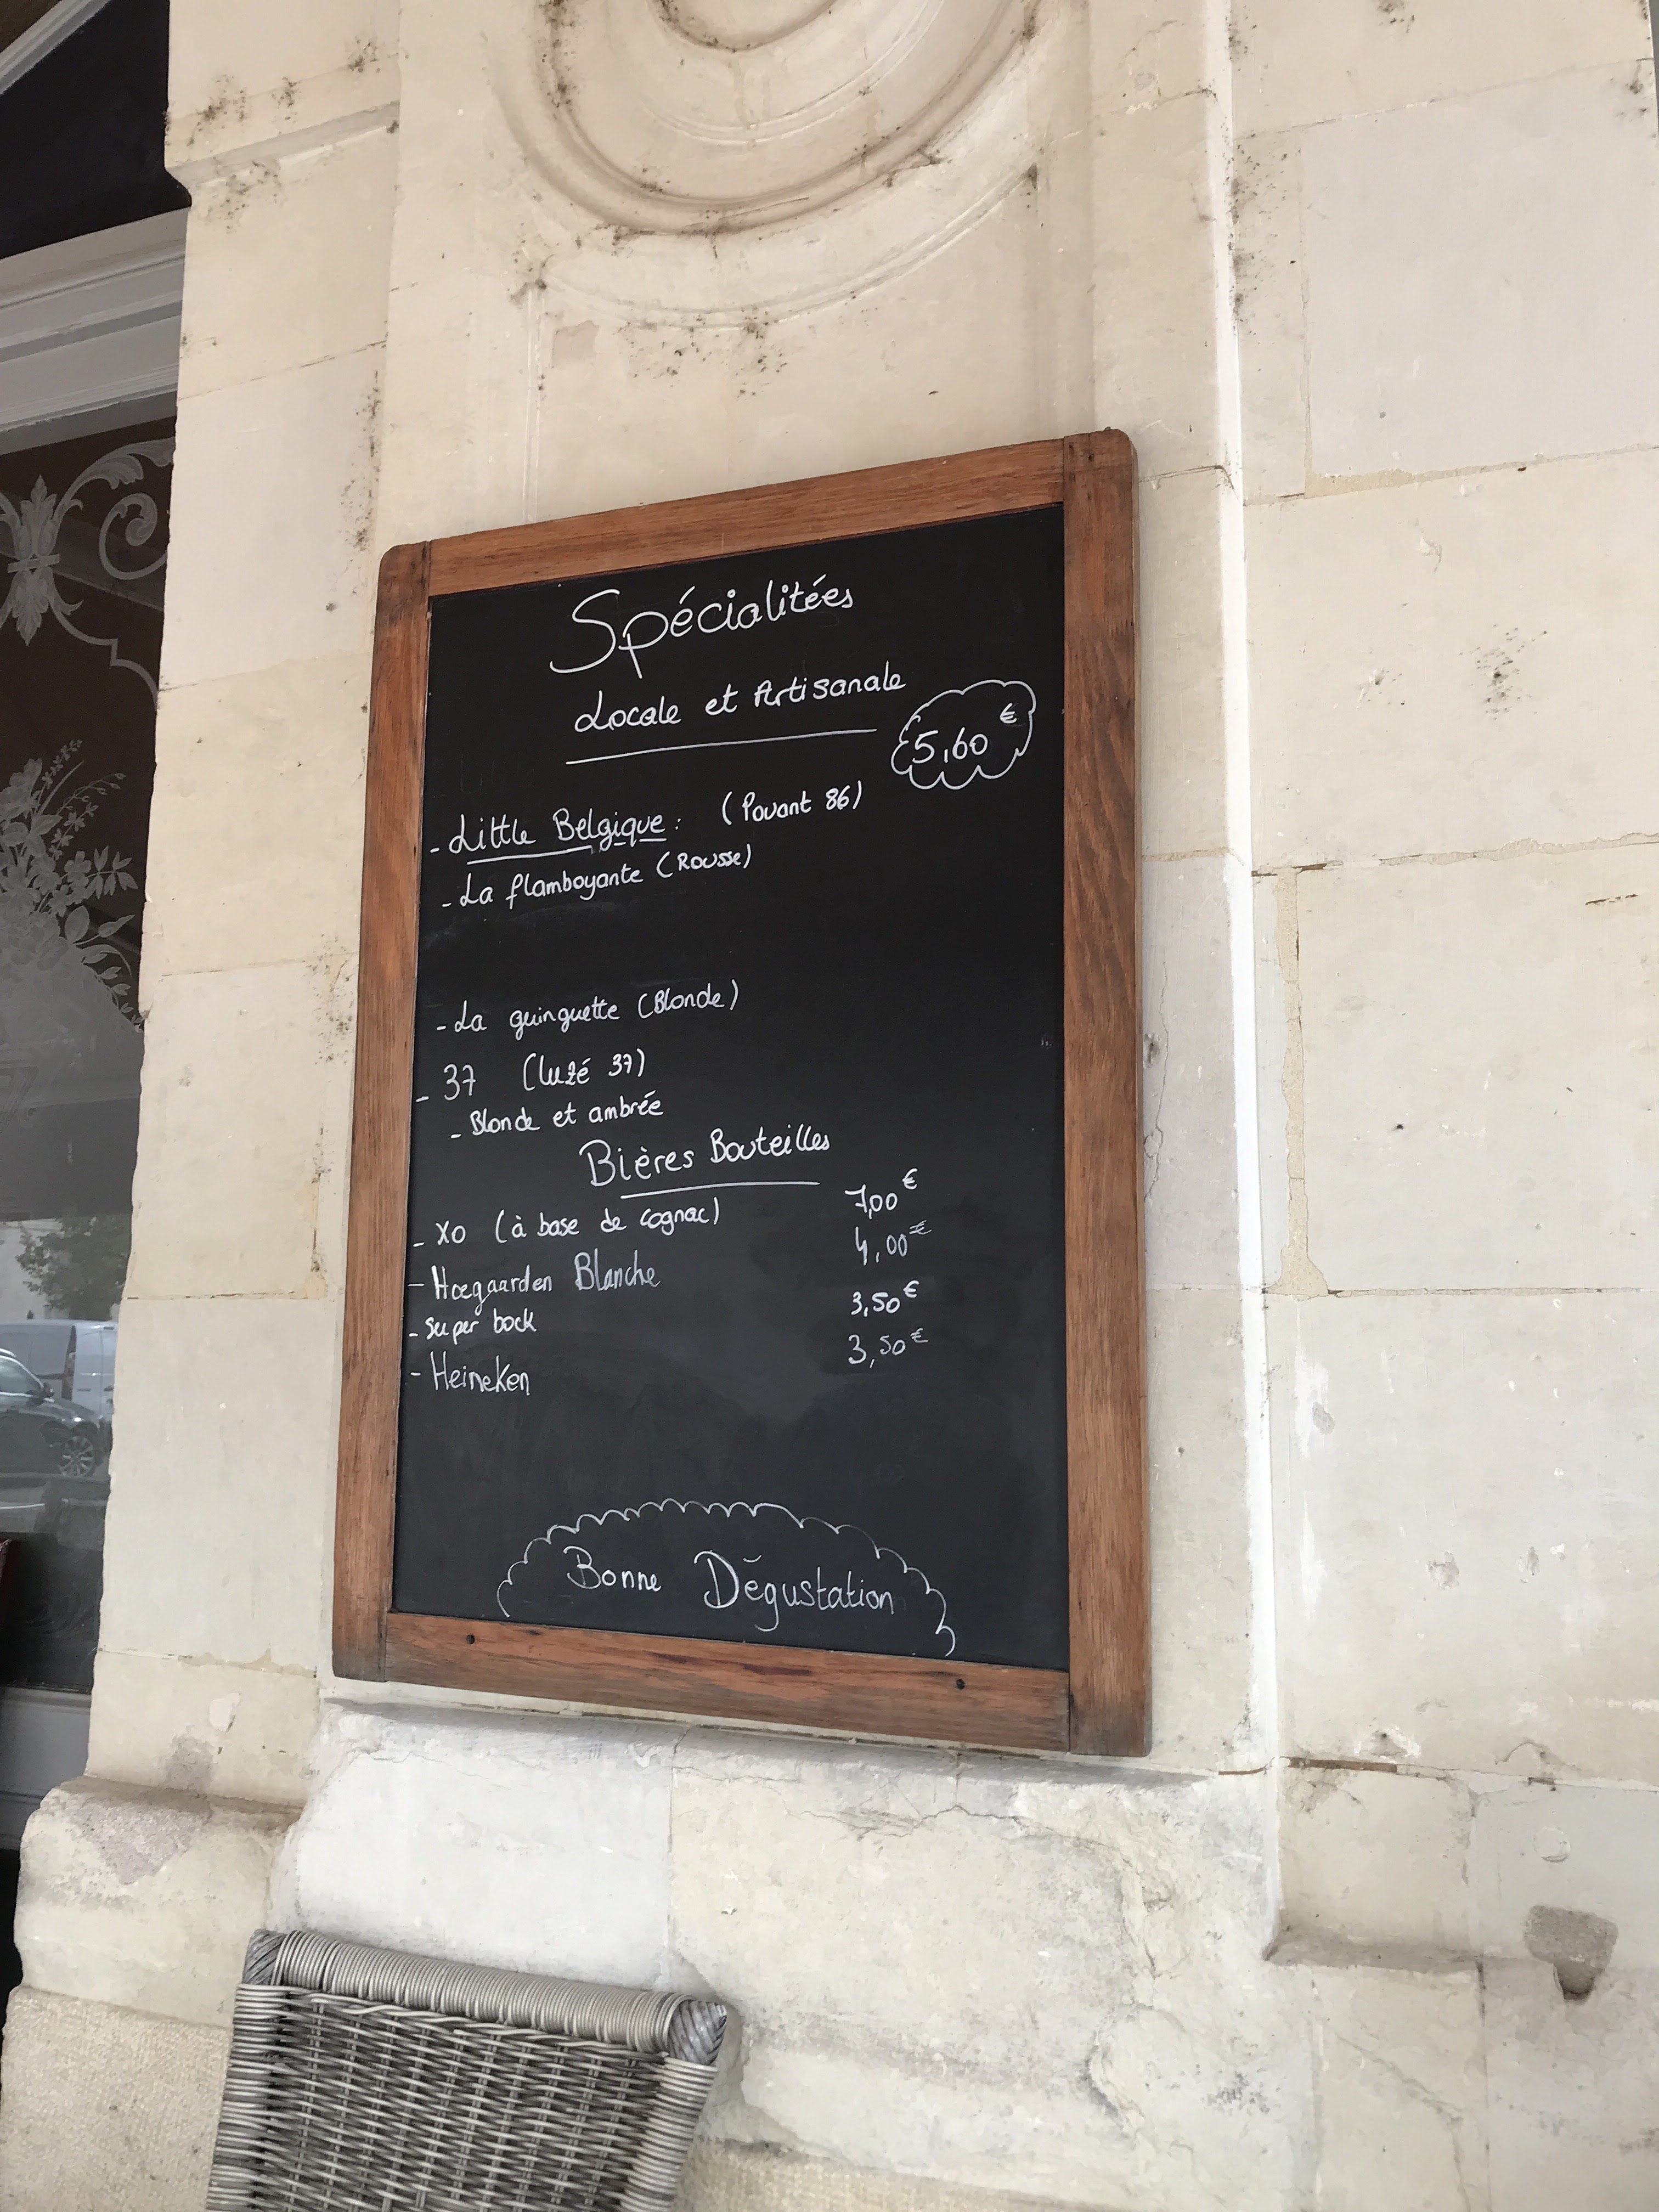 Spécialitées
Locale et Artisanale
5,60 €
- Little Belgique : (Pouant 86)
- La flamboyante (Rousse)
- La guinguette (Blonde)
- 37 (luzé 37)
- Blonde et ambrée
Bières Bouteilles
- XO (à base de cognac) 7,00 €
- Hoegaarden Blanche 4,00 €
- Super bock 3,50 €
- Heineken 3,50 €
Bonne Dégustation